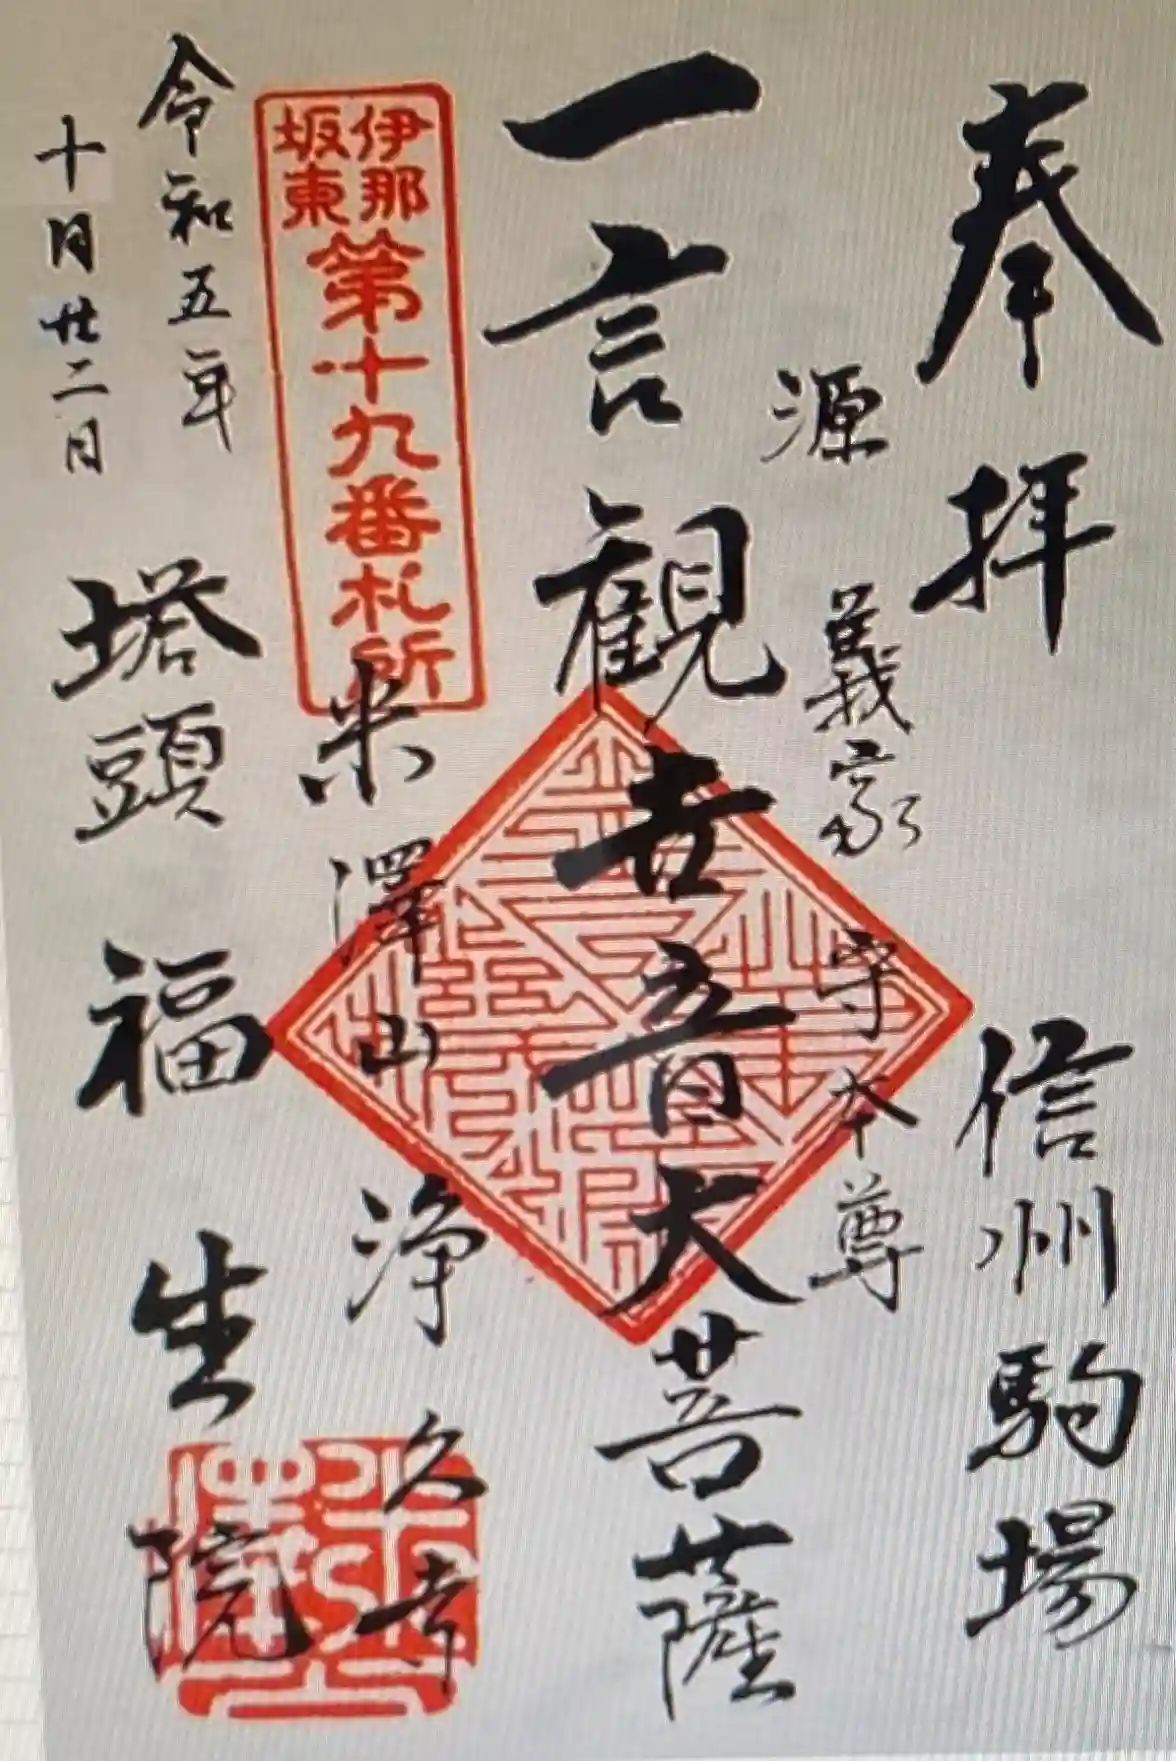 奉拝 信州駒場
源義家守本尊
一言観世音大菩薩
伊那
坂東
第十九番札所
米澤山 浄久寺
令和五年
十月廿二日
塔頭 福生院
米澤山